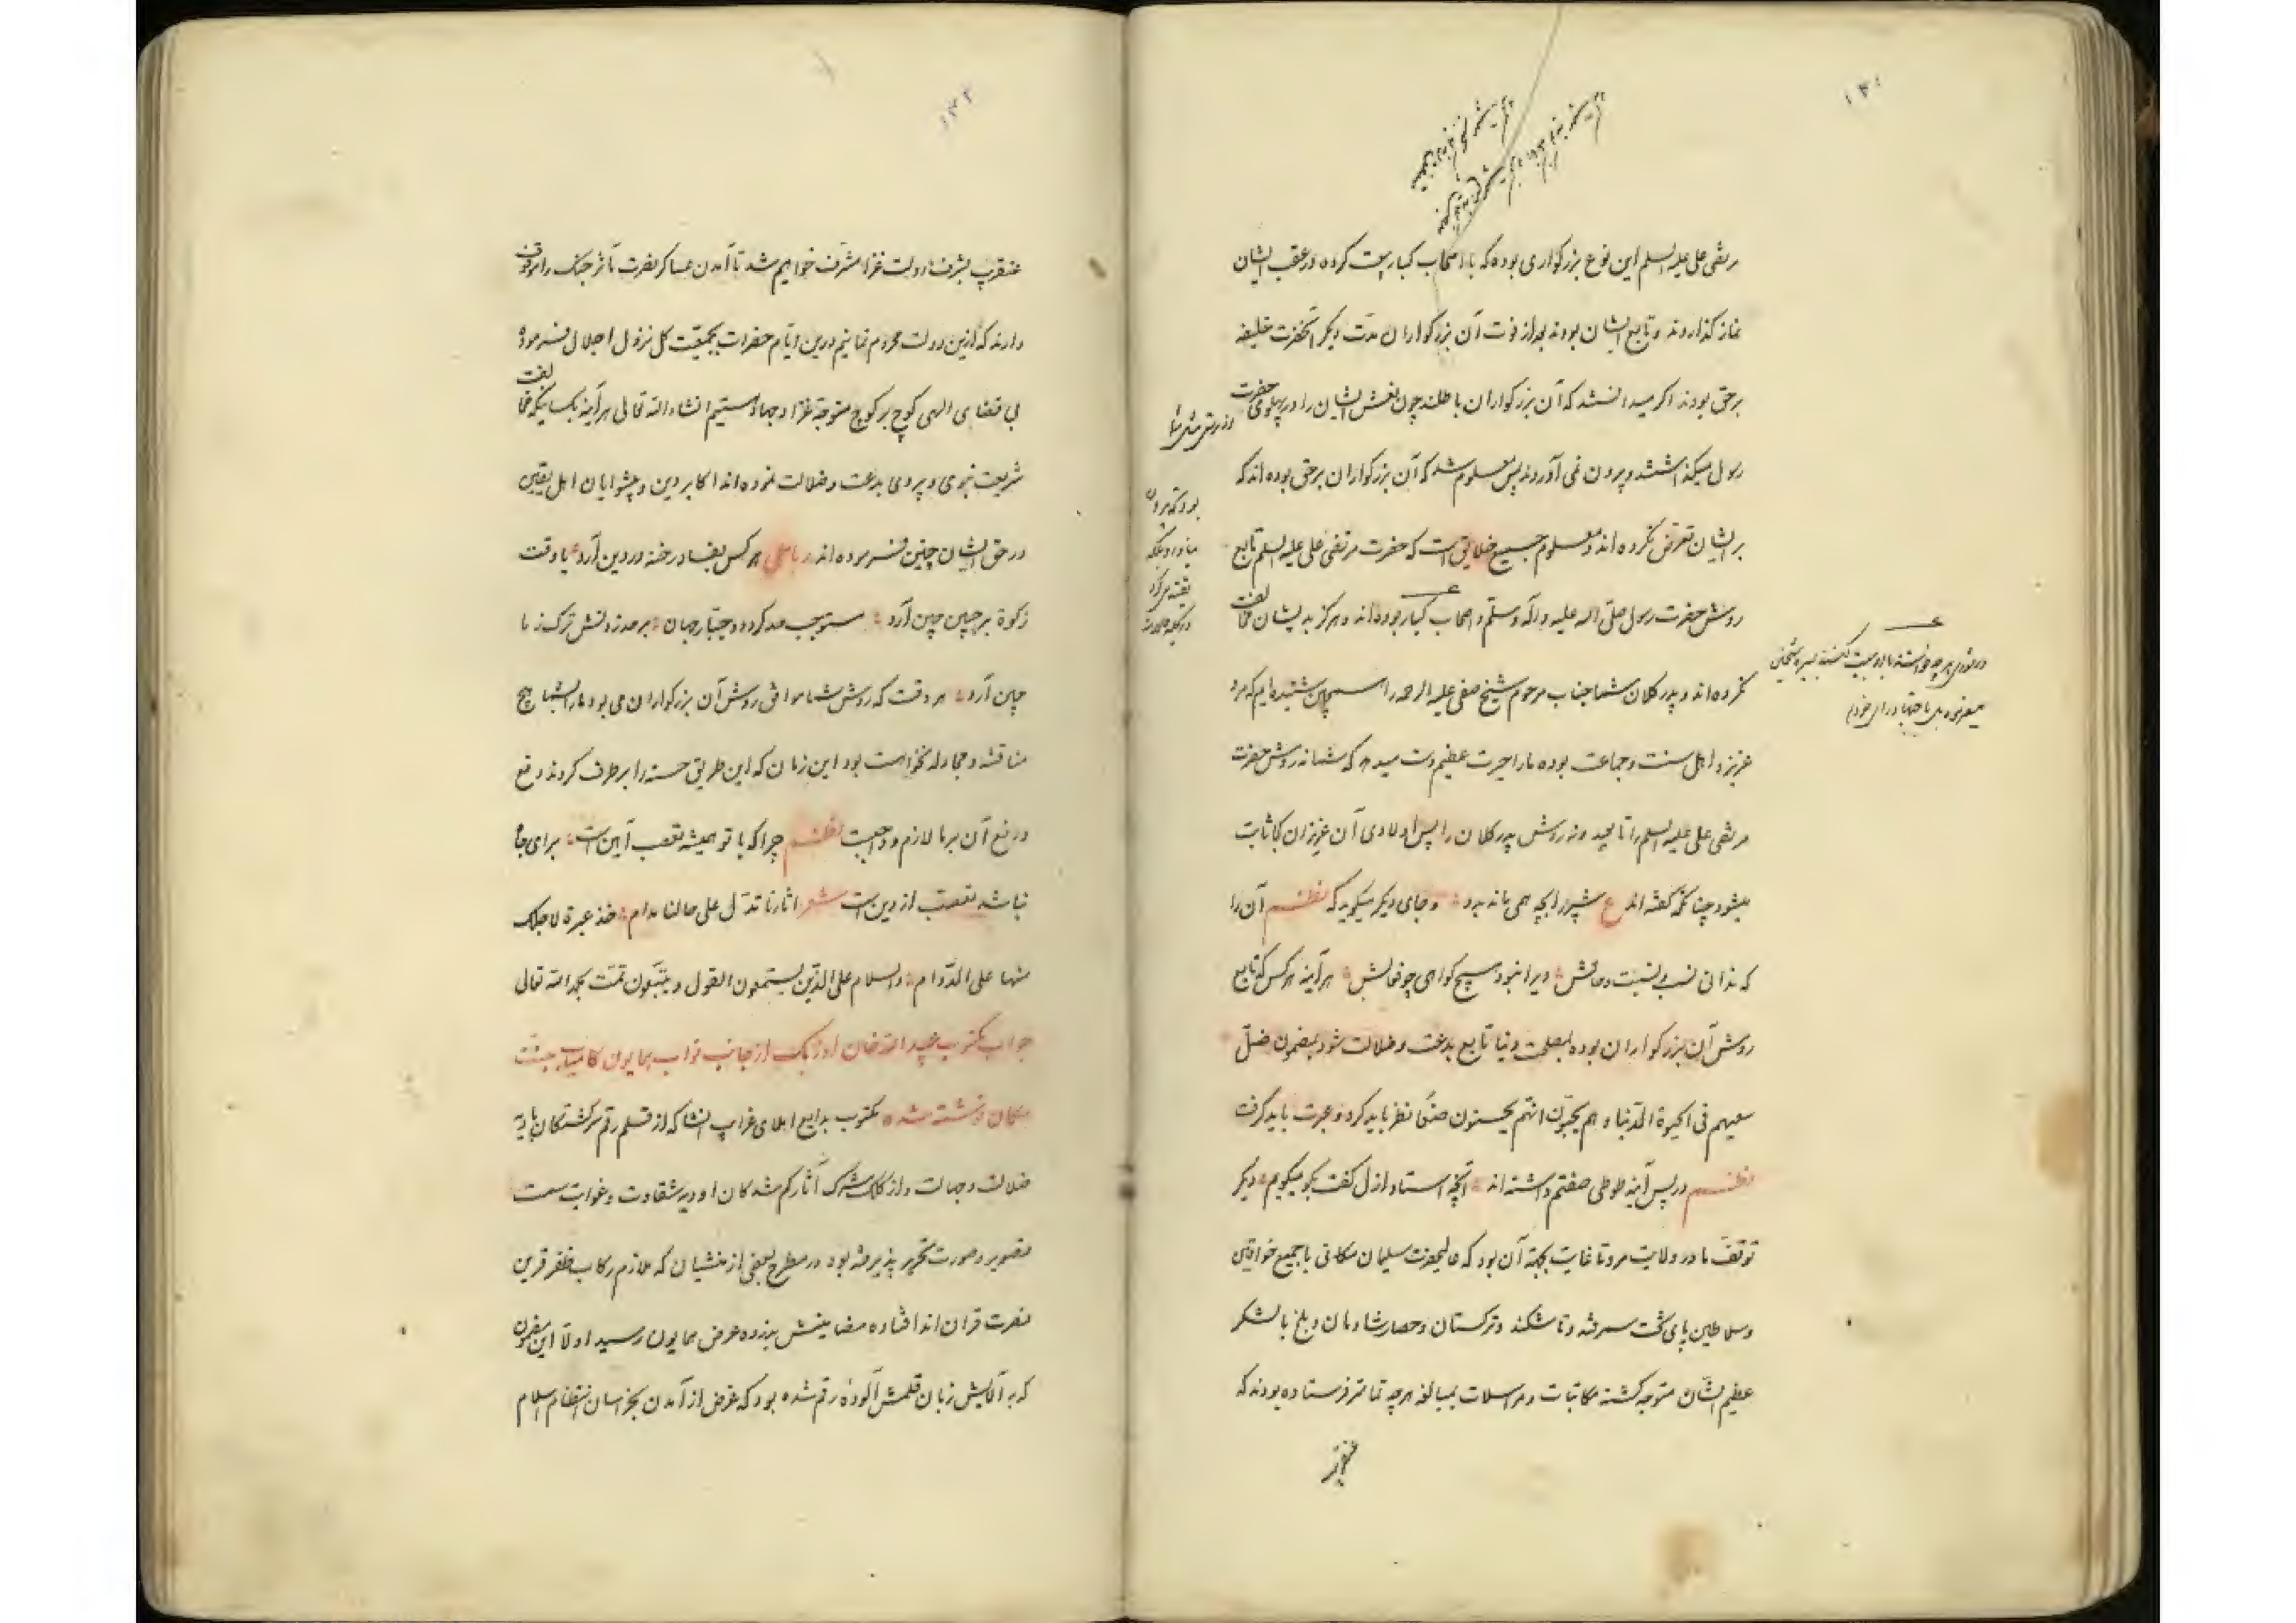 مرتضی علی علیه السلم این نوع بزرکواری بوده که با اصحاب کبار بیعت کرده در عقب ایشان
نماز کذاردند و تابع ایشان بودند بعد از فوت آن بزرکواران مدت دیکر آنحضرت خلیفه
برحق بودند اکر میدانستند که آن بزرکواران باطلند چون نعش ایشان را در پهلوی حضرت
رسول میکذاشتند و بیرون نمی آوردند پس معلوم شد که آن بزرکواران برحق بوده اند که
بر ایشان تعرض نکرده اند و معلوم جمیع خلایق است که حضرت مرتضی علی علیه السلم تابع
روش حضرت رسول صلی الله علیه و آله وسلم و اصحاب کبار بوده اند و هرکز بدیشان مخالفت
نکرده اند و پدر کلان شما جناب مرحوم شیخ صفی علیه الرحمه را همچنین شنیده ایم که مرد
عزیز و اهل سنت و جماعت بوده ما را حیرت عظیم دست میدهد که شما نه روش حضرت
مرتضی علی علیه السلم را تابعید و نه روش پدر کلان را پس اولادی آن عزیزان کجا ثابت
میشود چنانکه کفته اند ع شیر را بچه همی ماند بدو و جای دیکر میکوید که نظم آن را
که ندانی نسب و نسبت و حالش ویرا نبود هیچ کواهی چو فعالش هر آینه هر کس که تابع
روش آن بزرکواران بوده بمصلحت دنیا تابع بدعت و ضلالت شود بمضمون ضل
سعیهم فی الحیوة الدنیا و هم یحسبون انهم یحسنون صنعا نظر باید کرد و عبرت باید کرفت
نظم در پس آینه طوطی صفتم داشته اند آنچه استاد ازل کفت بکو میکویم دیکر
توقف ما در ولایت مرو تا غایت بجهة آن بود که عالیحضرت سلیمان مکانی با جمیع خواقین
و سلاطین پای تخت سمرقند و تاشکند و ترکستان و حصار شادمان و بلخ با لشکر
عظیم الشان متوجه کشته مکاتبات و مراسلات بمبالغه هر چه تمامتر فرستاده بودند که
عنقریب
۱۴۲
عنقریب بشرف دولت غزا مشرف خواهیم شد تا آمدن عساکر نصرت مآثر جنک را موقوف
دارند که ازین دولت محروم نمانیم درین ایام حضرات بجمعیت کل نزول اجلال فرموده
بی قضای الهی کوچ بر کوچ متوجه غزا و جهاد هستیم انشاء الله تعالی هر آینه بکسانیکه مخالفت
شریعت نبوی و پیروی بدعت و ضلالت نموده اند اکابر دین و پیشوایان اهل یقین
در حق ایشان چنین فرموده اند رباعی هر کس بفساد رخنه در دین آرد یا وقت
زکوة بر جبین چین آرد مستوجب حد کرده و جبار جهان بر حد زدنش ترک ز ما
چین آرد هر وقت که روش شما موافق روش آن بزرکواران می بود ما را بشما هیچ
مناقشه و مجادله نخواست بود این زمان که این طریق حسنه را بر طرف کردند دفع
و رفع آن بر ما لازم و واجبست نظم چرا که با تو همیشه تعصب آیین است برای جاه
نباشد تعصب از دین است شعر اثارنا تدل علی حالنا مدام خذ عبرة لاجلک
منها علی الدوام والسلام علی الذین یستمعون القول و یتبعون تمت بحمد الله تعالی
جواب مکتوب عبید الله خان اوزبک از جانب نواب همایون کامیاب جنت
مکان نوشته شده مکتوب بدایع املای غرایب انشا که از قلم رقم سرکشتکان بادیه
ضلالت و جهالت و از کلک مشرک آثار کم شدکان اودیه شقاوت و غوایت سمت
تصویر و صورت تحریر پذیرفته بود در مطرح بعضی از منشیان که ملازم رکاب ظفر قرین
نصرت قران اند افتاده مضامینش بذروه عرض همایون رسید اولا این مضمون
که به آلایش زبان قلمش آلوده رقم شده بود که غرض از آمدن بخراسان انتظام اسلام